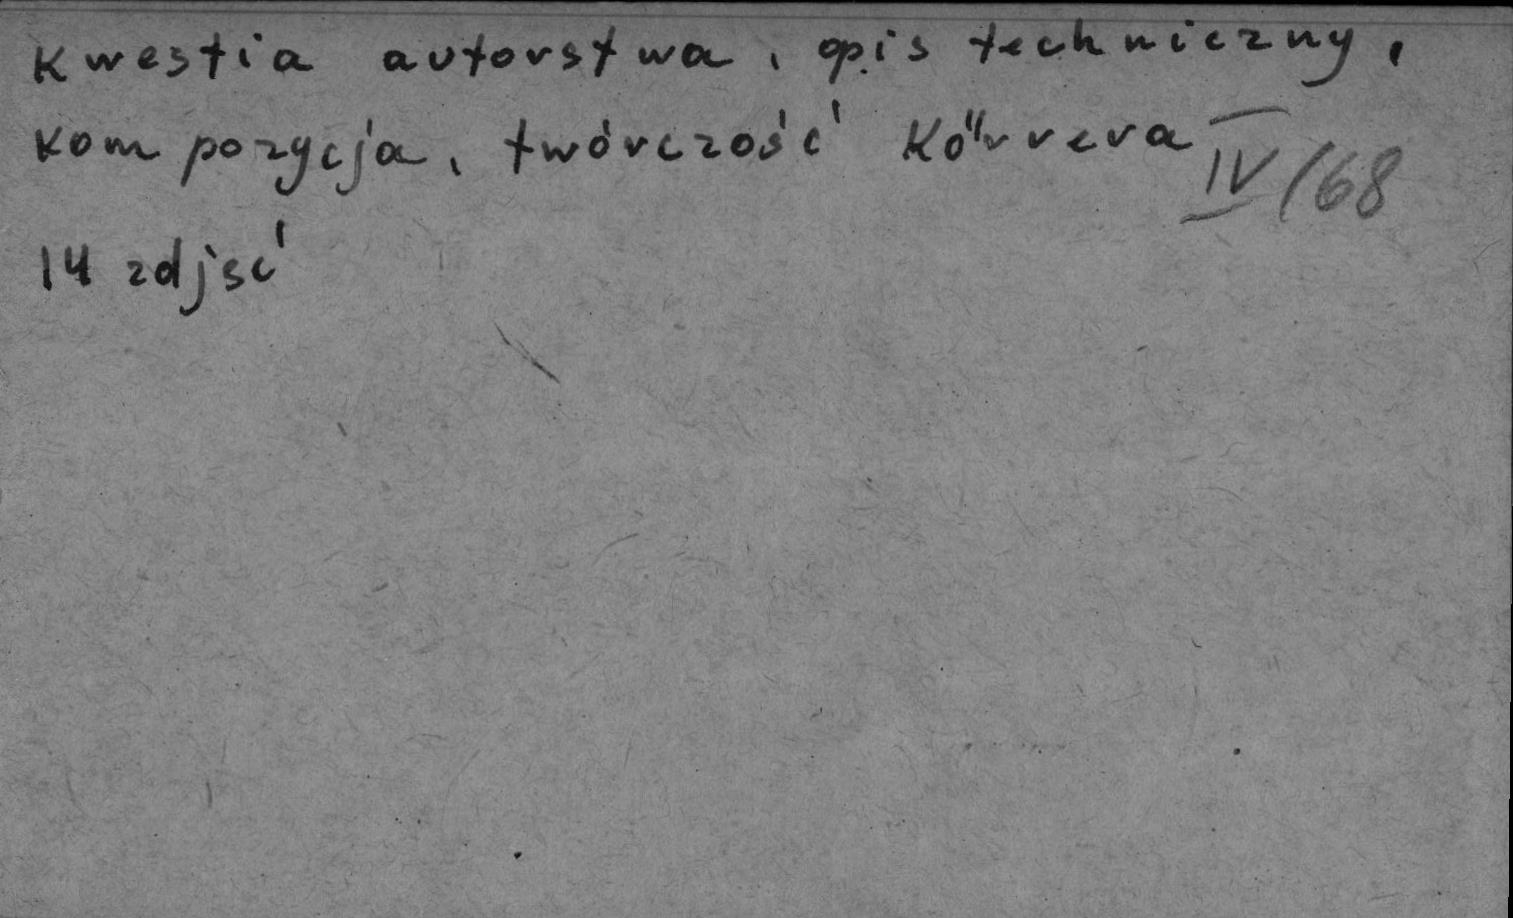 Kwestia autorstwa, opis techniczny,
kompozycja, twórczość Körrera
IV/68
14 zdjęć